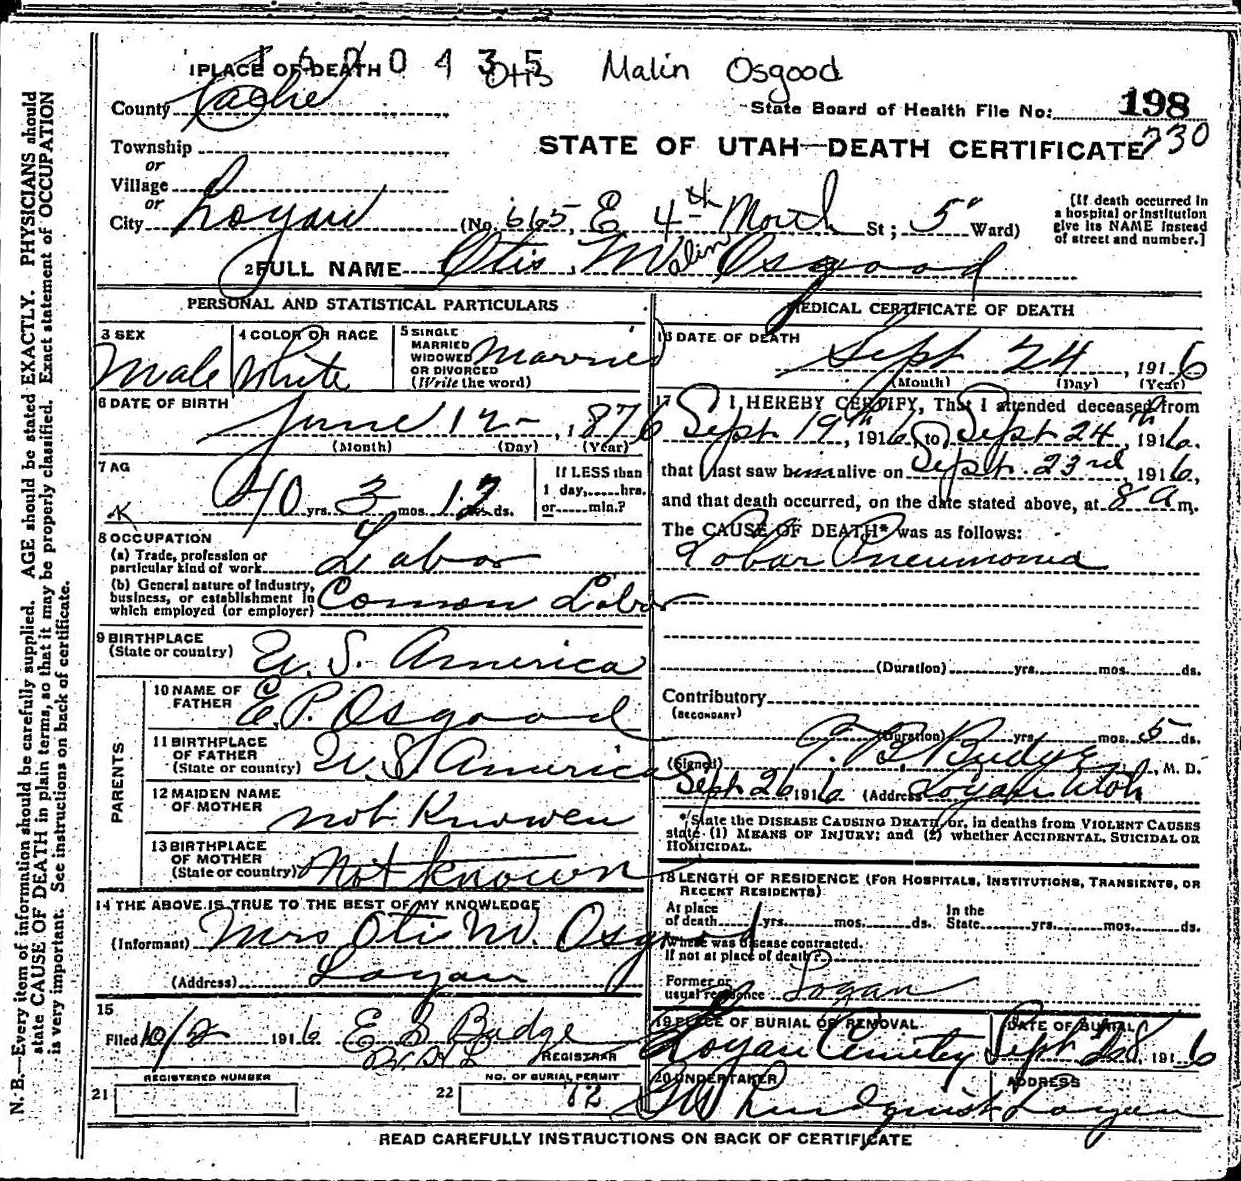 1600435
Otis Malin Osgood
1 PLACE OF DEATH
County Cache
State Board of Health File No. 198
230
Township
or
Village
or
City Logan (No. 665, E 4th North St; 5" Ward)
STATE OF UTAH—DEATH CERTIFICATE
[If death occurred in
a hospital or institution
give its NAME instead
of street and number.]
2 FULL NAME Otis Malin Osgood
PERSONAL AND STATISTICAL PARTICULARS
3 SEX Male
4 COLOR OR RACE White
5 SINGLE
MARRIED
WIDOWED
OR DIVORCED
(Write the word) Married
6 DATE OF BIRTH June 12 1876
(Month) (Day) (Year)
7 AG
40 yrs. 3 mos. 12 ds.
If LESS than
1 day, hrs.
or min.?
8 OCCUPATION
(a) Trade, profession or
particular kind of work Labor
(b) General nature of industry,
business, or establishment in
which employed (or employer) Common Labor
9 BIRTHPLACE
(State or country) U. S. America
PARENTS
10 NAME OF
FATHER E. P. Osgood
11 BIRTHPLACE
OF FATHER
(State or country) U. S. America
12 MAIDEN NAME
OF MOTHER not Knowen
13 BIRTHPLACE
OF MOTHER
(State or country) Not Known
14 THE ABOVE IS TRUE TO THE BEST OF MY KNOWLEDGE
(Informant) Mrs Otis M. Osgood
(Address) Logan
15
Filed 10/2 1916 E S Budge
REGISTRAR
REGISTERED NUMBER
21
NO. OF BURIAL PERMIT
22 72
MEDICAL CERTIFICATE OF DEATH
16 DATE OF DEATH
Sept 24, 1916
(Month) (Day) (Year)
17 I HEREBY CERTIFY, That I attended deceased from
Sept 19th, 1916, to Sept 24th, 1916.
that I last saw him alive on Sept. 23rd, 1916,
and that death occurred, on the date stated above, at 8 a m.
The CAUSE OF DEATH* was as follows:
Lobar Pneumonia
(Duration) yrs. mos. ds.
Contributory
(SECONDARY)
(Duration) yrs. mos. 5 ds.
(Signed) Budge, M. D.
Sept 26 1916 (Address) Logan Utah
*State the DISEASE CAUSING DEATH, or, in deaths from VIOLENT CAUSES
state (1) MEANS OF INJURY; and (2) whether ACCIDENTAL, SUICIDAL OR
HOMICIDAL.
18 LENGTH OF RESIDENCE (FOR HOSPITALS, INSTITUTIONS, TRANSIENTS, OR
RECENT RESIDENTS)
At place
of death yrs. mos. ds. In the
State yrs. mos. ds.
Where was disease contracted,
If not at place of death?
Former or
usual residence Logan
19 PLACE OF BURIAL OR REMOVAL
Logan Cemetery
DATE OF BURIAL
Sept 28 1916
20 UNDERTAKER
Lundquist
ADDRESS
Logan
READ CAREFULLY INSTRUCTIONS ON BACK OF CERTIFICATE
N. B.—Every item of information should be carefully supplied. AGE should be stated EXACTLY. PHYSICIANS should
state CAUSE OF DEATH in plain terms, so that it may be properly classified. Exact statement of OCCUPATION
is very important. See instructions on back of certificate.